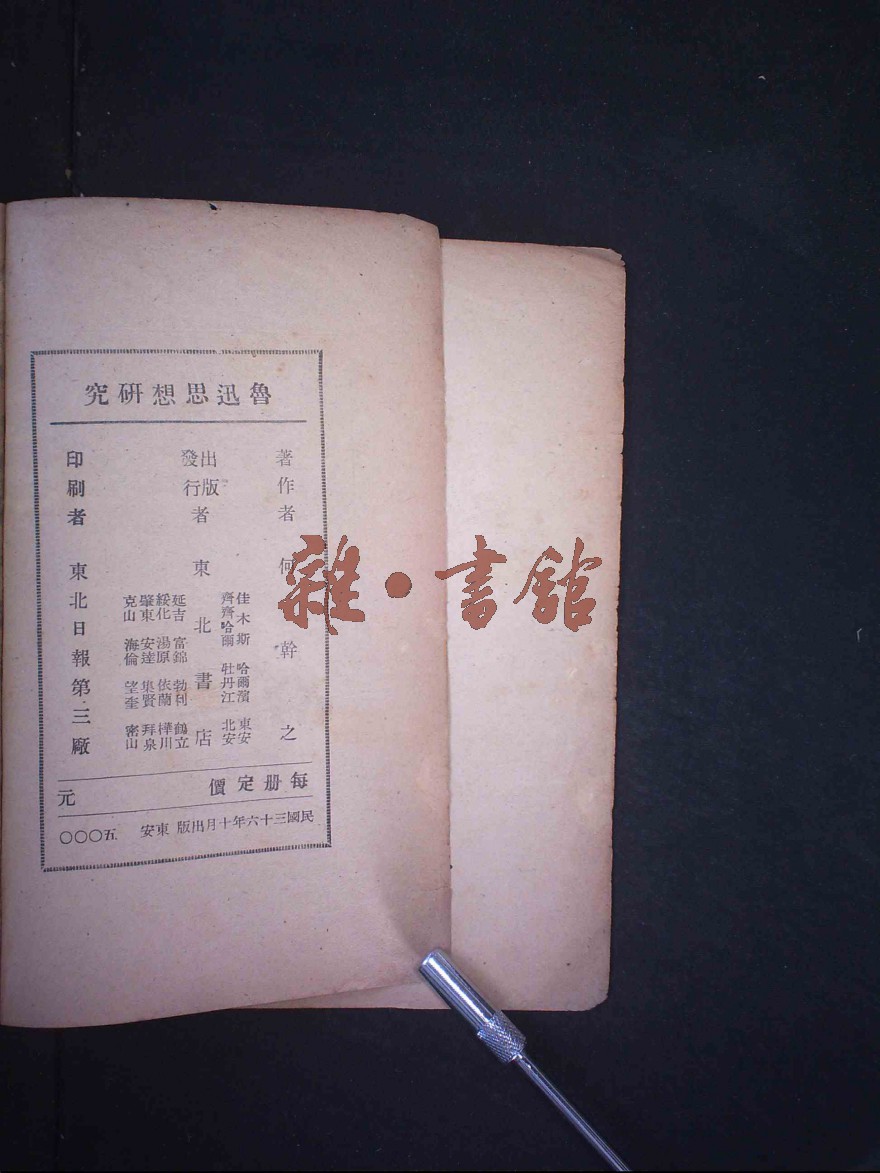 魯迅思想研究
著作者 何幹之
出版
發行
者 東北書店
佳木斯 哈爾濱 東安
齊齊哈爾 牡丹江 北安
延吉 富錦 勃利 鶴立
綏化 湯原 依蘭 樺川
肇東 安達 集賢 拜泉
克山 海倫 望奎 密山
印刷者 東北日報第三廠
每册定價 元
民國三十六年十月出版 東安 五〇〇〇
雜·書館